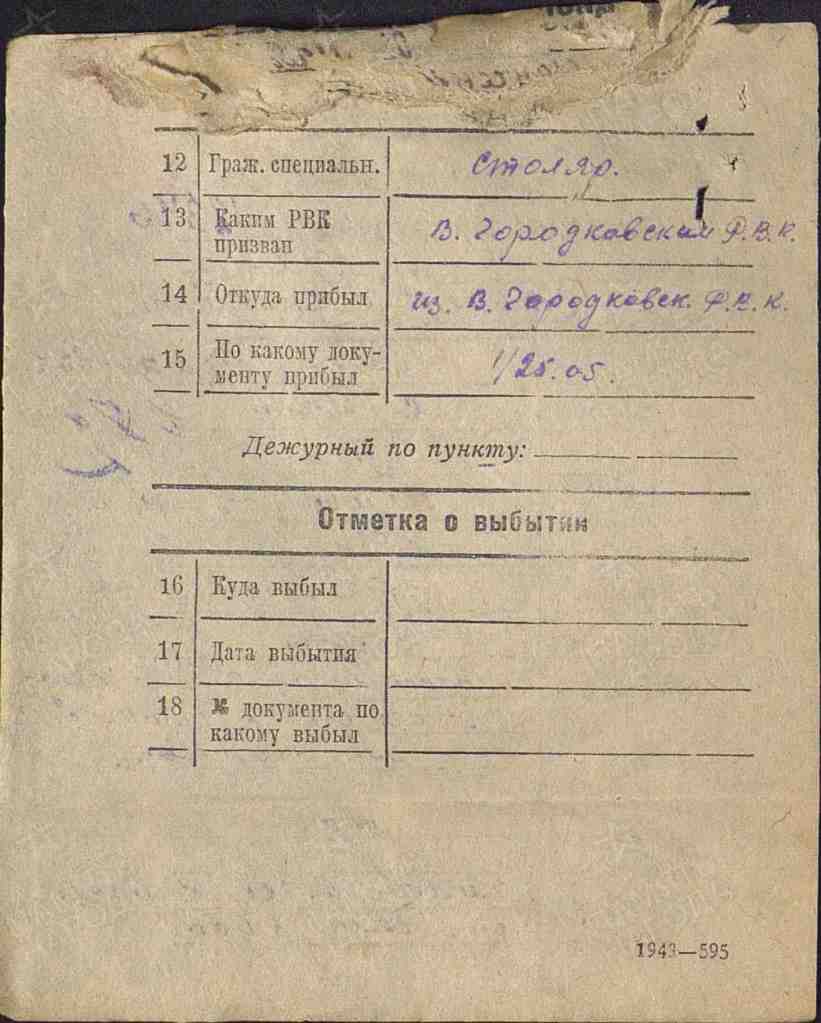 12 Граж. специальн. столяр.
13 Каким РВК призван В. Городковским Р.В.К.
14 Откуда прибыл из В. Городковск. Р.В.К.
15 По какому доку-
менту прибыл 1/25.05.
Дежурный по пункту:
Отметка о выбытии
16 Куда выбыл
17 Дата выбытия
18 № документа по
какому выбыл
1943—595